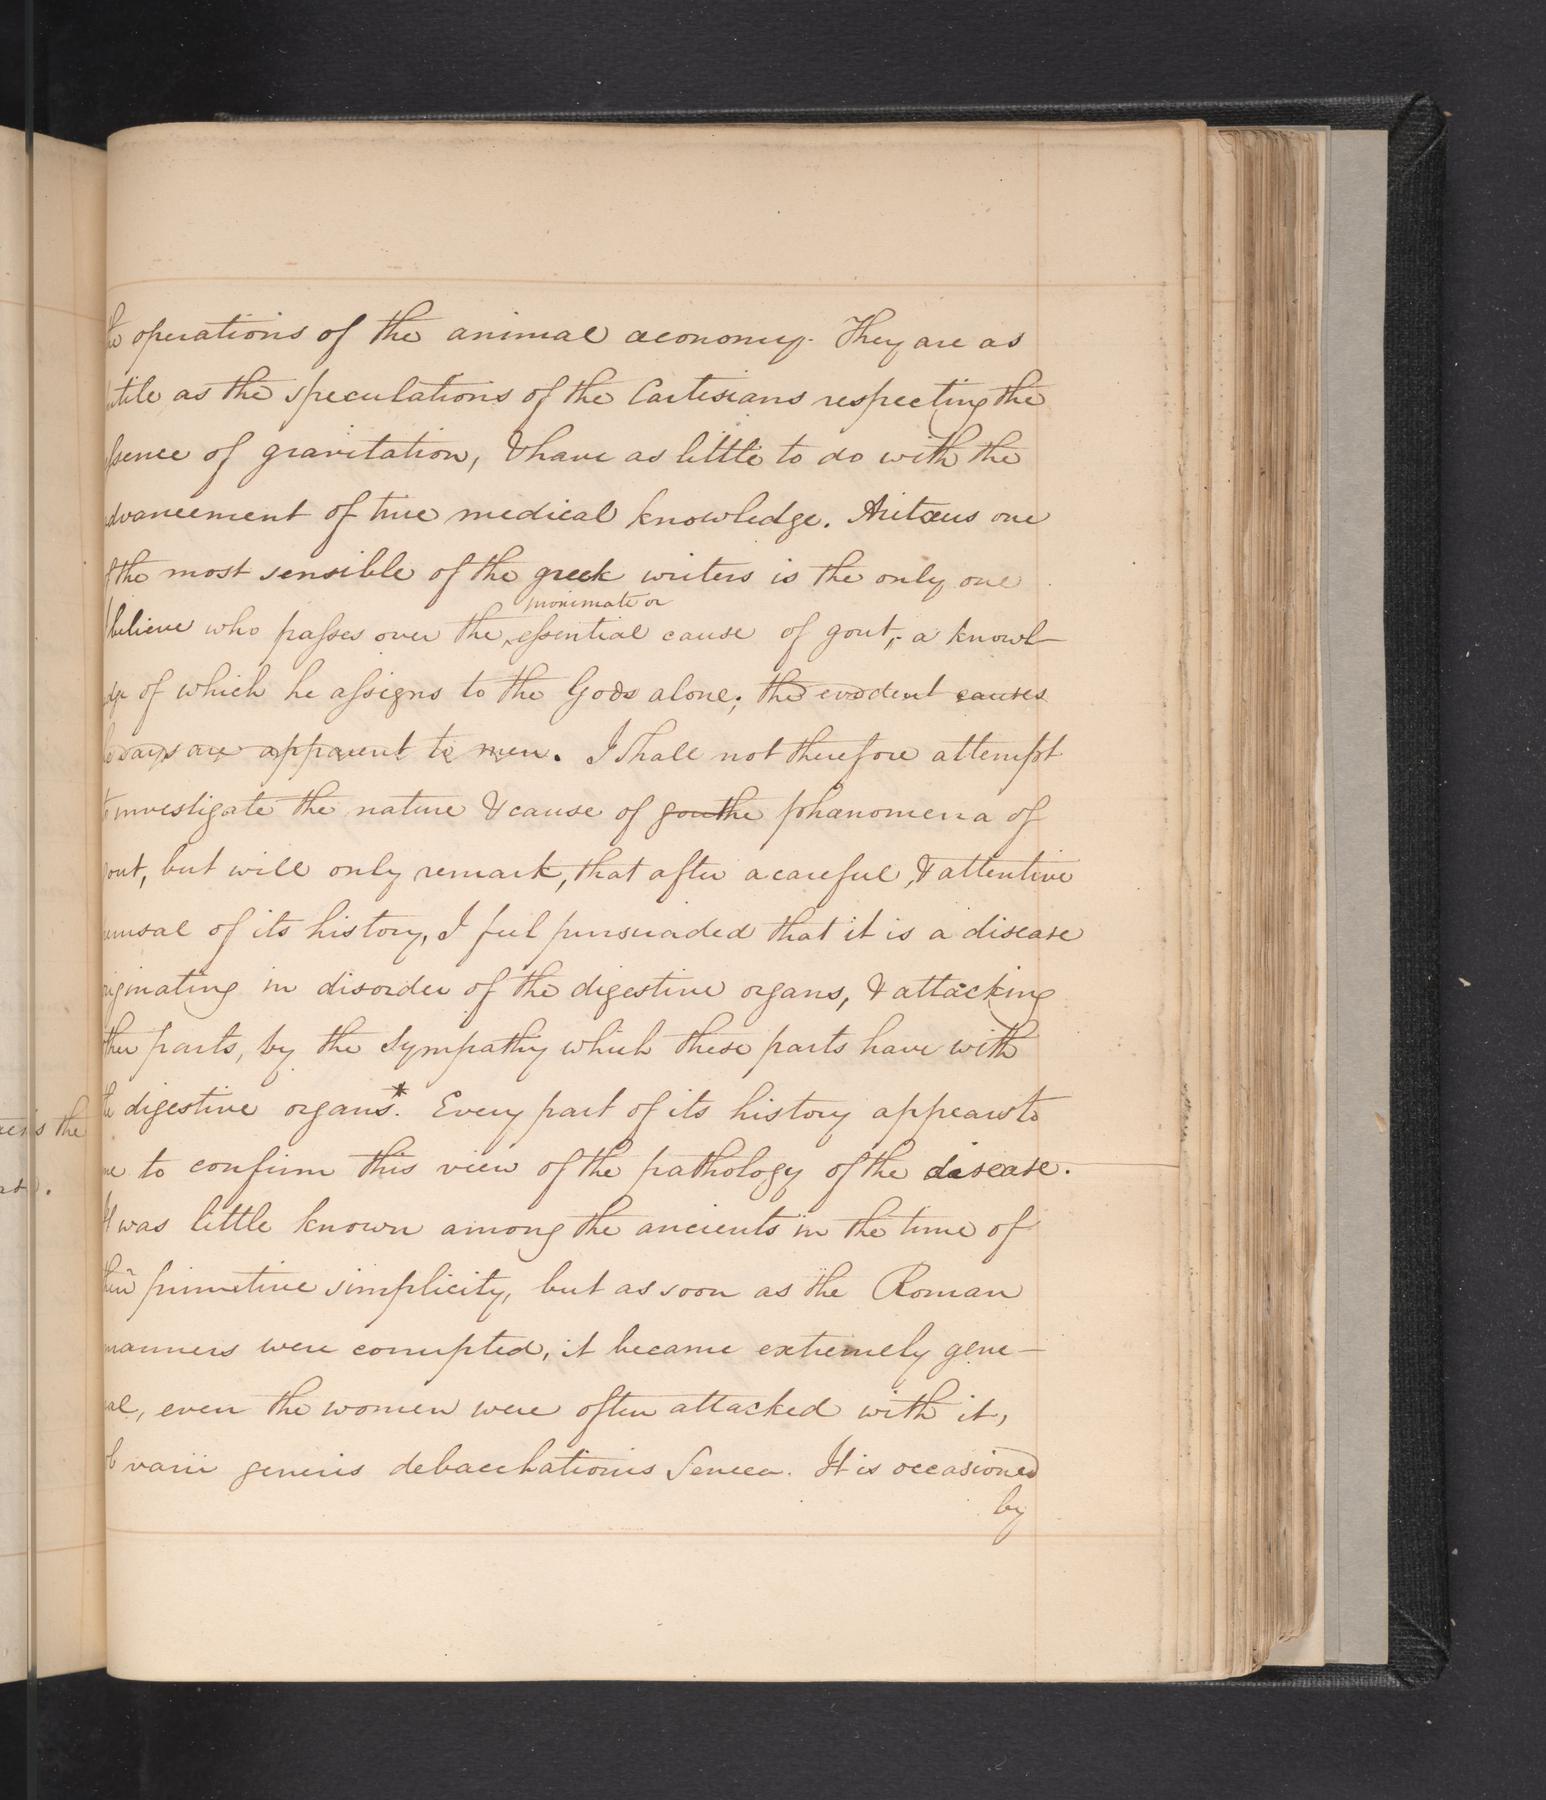 the operations of the animal œconomy. They are as
futile as the speculations of the Cartesians respecting the
essence of gravitation, & have as little to do with the
advancement of true medical knowledge. Aretæus one
of the most sensible of the greek writers is the only one
proximate or
I believe who passes over the ‸ essential cause of gout,- a knowl-
edge of which he assigns to the Gods alone; the evident causes
he says are apparent to men. I shall not therefore attempt
to investigate the nature & cause of gouthe phænomena of
gout, but will only remark, that after a careful, & attentive
perusal of its history, I feel pursuaded that it is a disease
originating in disorder of the digestive organs, & attacking
other parts, by the sympathy which these parts have with
the digestive organs.* Every part of its history appears to
me to confirm this view of the pathology of the disease.
It was little known among the ancients in the time of
their primetive simplicity, but as soon as the Roman
manners were corrupted, it became extremely gene-
ral, even the women were often attacked with it,
ob varii generis debacchationis Seneca. It is occasioned
by
s the